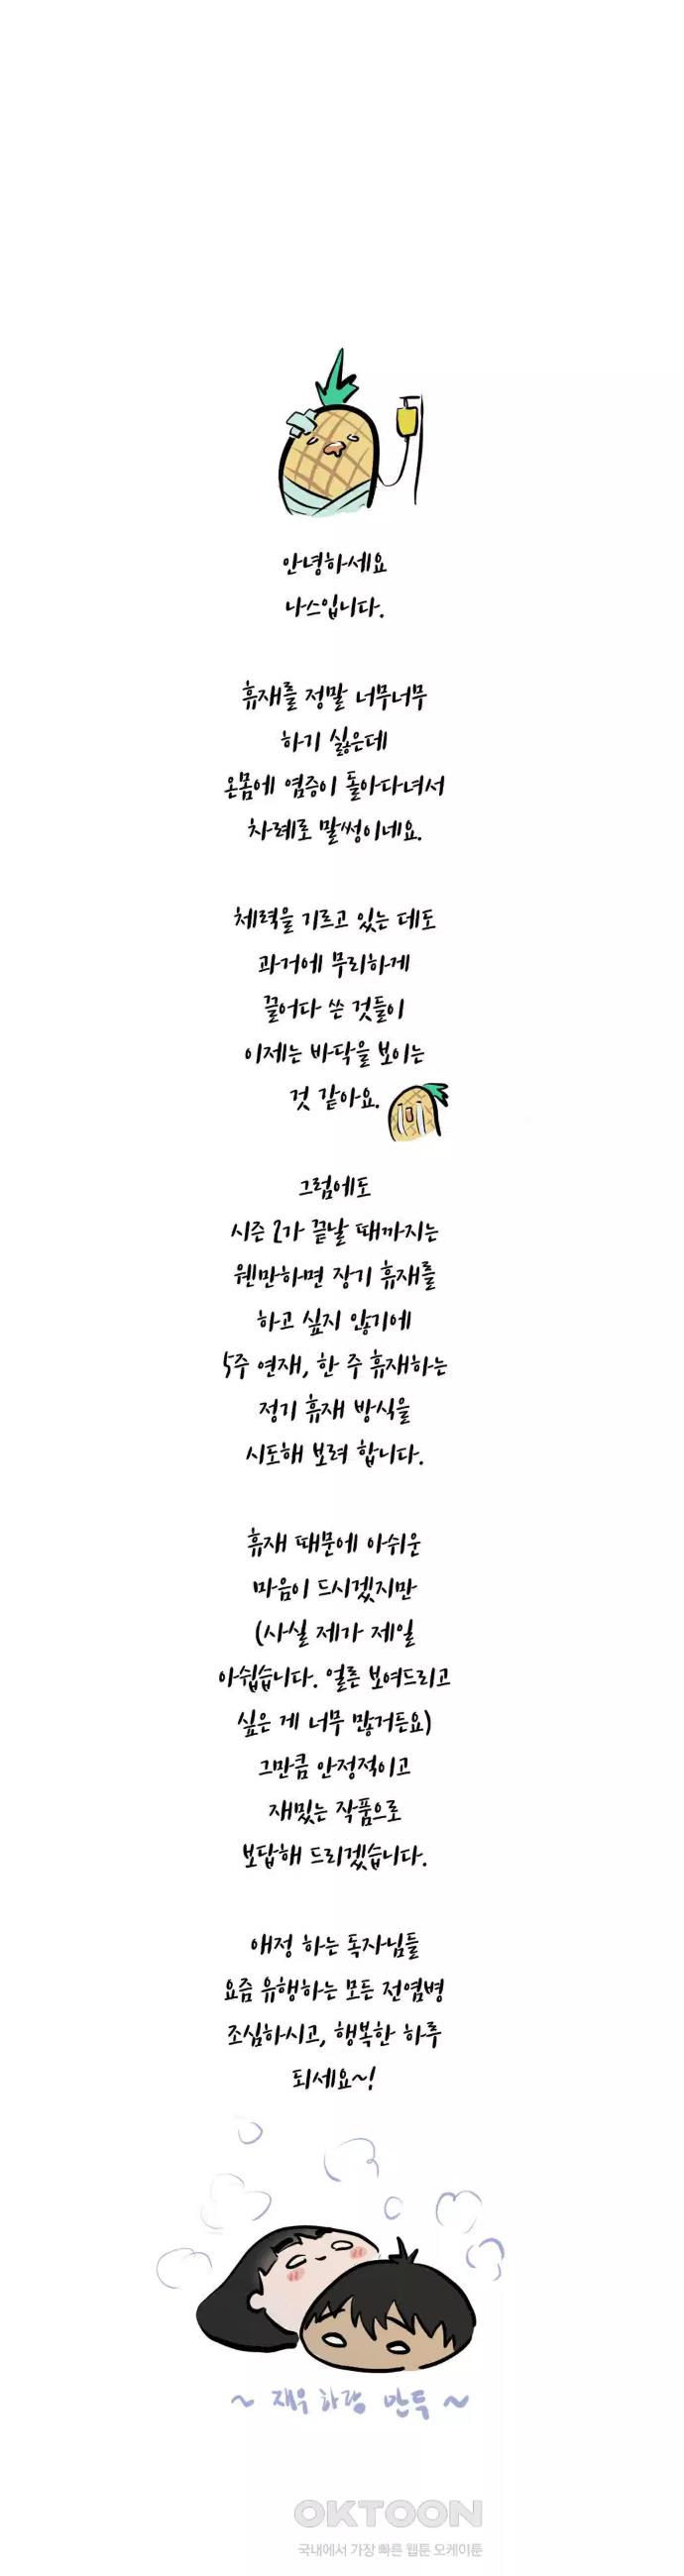 안녕하세요
나스입니다.
휴재를 정말 너무너무
하기 싫은데
온몸에 염증이 돌아다녀서
차례로 말썽이네요.
체력을 기르고 있는 데도
과거에 무리하게
끌어다 쓴 것들이
이제는 바닥을 보이는
것 같아요.
그럼에도
시즌 2가 끝날 때까지는
웬만하면 장기 휴재를
하고 싶지 않기에
5주 연재, 한 주 휴재하는
정기 휴재 방식을
시도해 보려 합니다.
휴재 때문에 아쉬운
마음이 드시겠지만
(사실 제가 제일
아쉽습니다. 얼른 보여드리고
싶은 게 너무 많거든요)
그만큼 안정적이고
재밌는 작품으로
보답해 드리겠습니다.
애정 하는 독자님들
요즘 유행하는 모든 전염병
조심하시고, 행복한 하루
되세요~!
~ 재우 하랑 만두 ~
OKTOON
국내에서 가장 빠른 웹툰 오케이툰